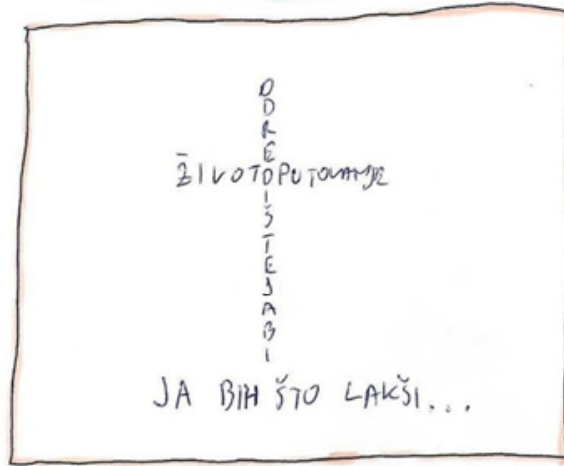 ODREDIŠTEJABI
ŽIVOTOPUTOVANJE
JA BIH ŠTO LAKŠI...